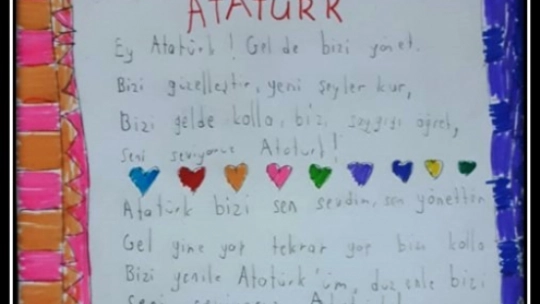 ATATÜRK
Ey Atatürk! Gel de bizi yönet.
Bizi güzelleştir, yeni şeyler kur,
Bizi gelde kolla, bizi saygıyı öğret,
Seni seviyoruz Atatürk!
Atatürk bizi sen sevdin, sen yönettin
Gel yine yap tekrar yap bizi kolla
Bizi yenile Atatürk'üm, düzenle bizi